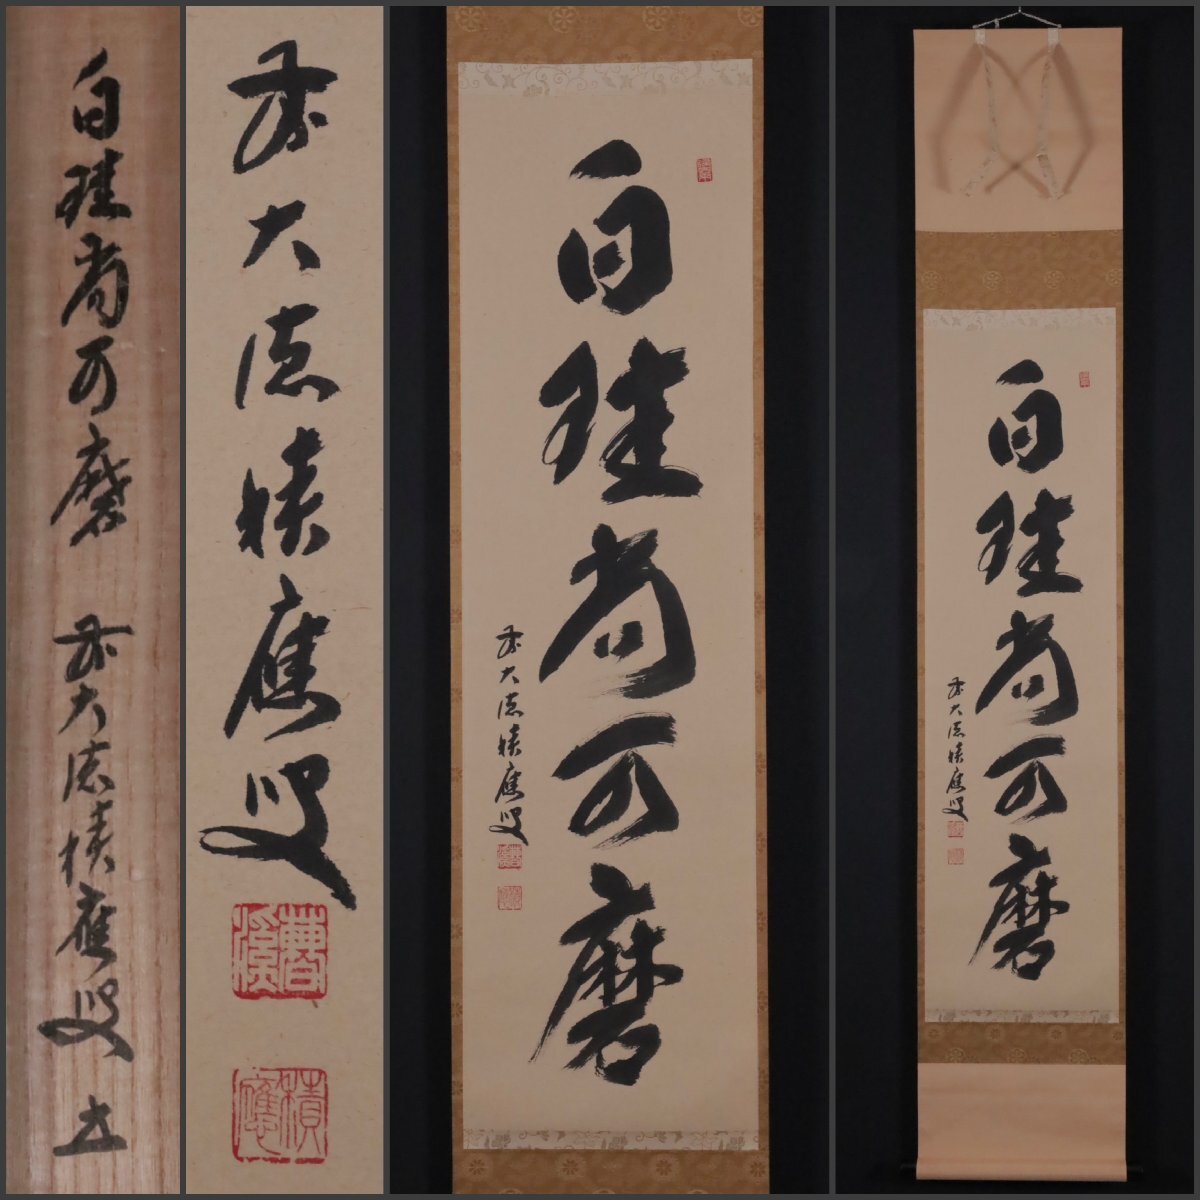 白珪尚可磨 前大徳積應叟
前大徳積應叟
積應
白珪尚可磨
前大徳積應叟
白珪尚可磨
前大徳積應叟